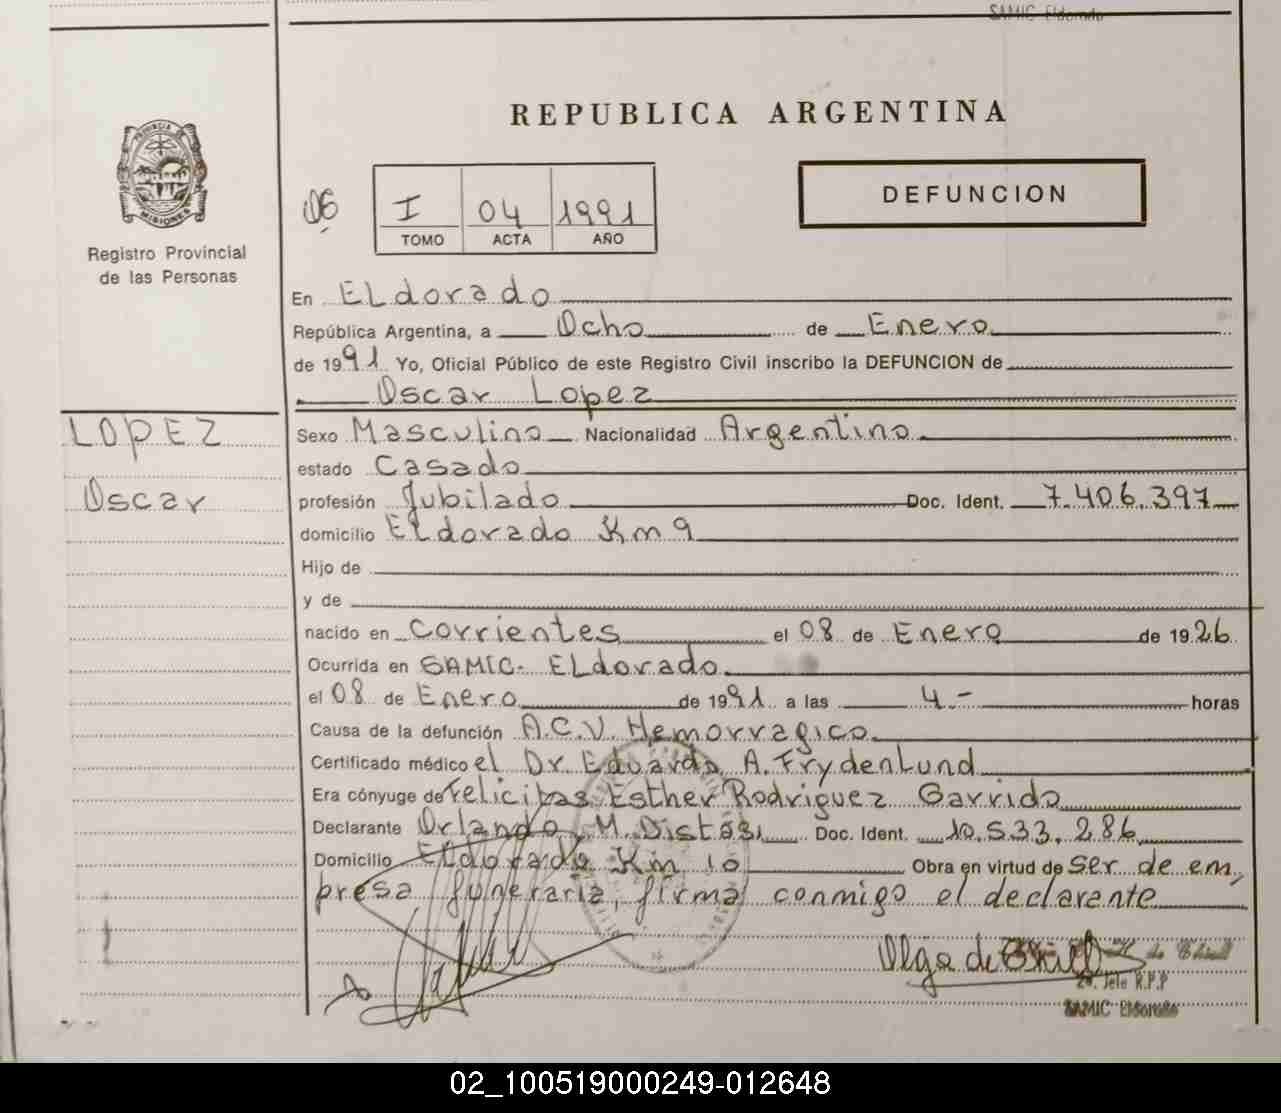 SAMIC Eldorado
REPUBLICA ARGENTINA
PROVINCIA DE
MISIONES
Registro Provincial
de las Personas
06
I 04 1991
TOMO ACTA AÑO
DEFUNCION
En ELdorado
República Argentina, a Ocho de Enero
de 1991 Yo, Oficial Público de este Registro Civil inscribo la DEFUNCION de
Oscar Lopez
LOPEZ
Oscar
Sexo Masculino Nacionalidad Argentino
estado Casado
profesión Jubilado Doc. Ident. 7.406.397
domicilio ELdorado Km 9
Hijo de
y de
nacido en Corrientes el 08 de Enero de 1926
Ocurrida en SAMIC. ELdorado.
el 08 de Enero de 1991 a las 4 - horas
Causa de la defunción A.C.V. Hemorragico.
Certificado médico el Dr. Eduardo A. FrydenLund
Era cónyuge de Felicitas Esther Rodriguez Garrido
Declarante Orlando M. Distasi Doc. Ident. 10.533.286
Domicilio ELdorado Km 10 Obra en virtud de ser de em,
presa funeraria, firma conmigo el declarante
Olga de
2a. Jefe R.P.P
SAMIC Eldorado
02_100519000249-012648